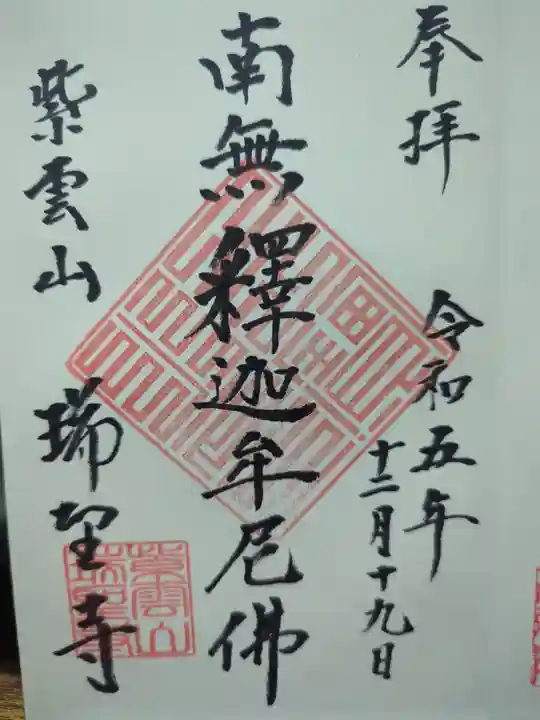 奉拝
令和五年
十二月十九日
南無釋迦牟尼佛
紫雲山
瑞聖寺
紫雲山
瑞聖寺